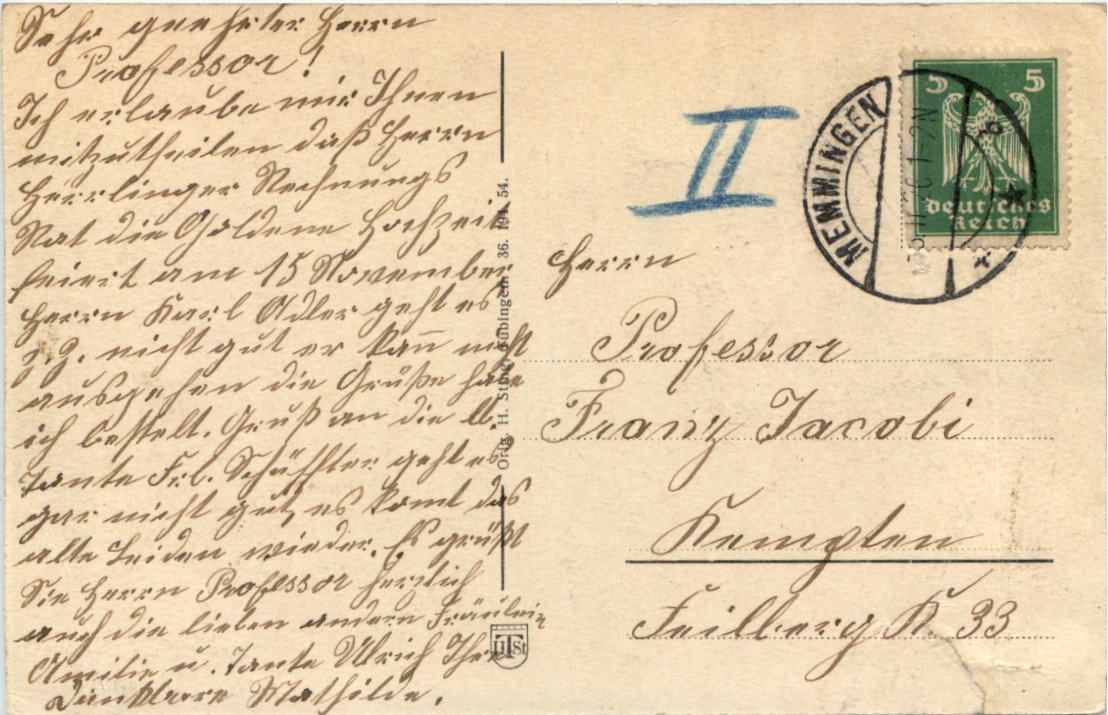 Sehr geehrter Herrn
Professor!
Ich erlaube mir Ihnen
mitzutheilen daß Herrn
Herrlinger Rechnungs
Rat die Goldene Hochzeit
feiert am 15 November
Herrn Karl Adler geht es
z. Z. nicht gut er kann nicht
ausgehen die Grüße habe
ich bestelt. Gruß an die lb.
Tante Frl. Schäffler geht es
gar nicht gut, es komt das
alte Leiden wieder. Es grüßt
Sie Herrn Professor herzlich
auch die lieben andern Fräulein
Amilie u. Tante Ulrich Ihre
Dankbare Mathilde.
Orig. H. Tübingen. 36. 54.
HTSt
II
MEMMINGEN
1-2N
5 5
Deutsches
Reich
Herrn
Professor
Franz Jacobi
Kempten
Feilberg K. 33